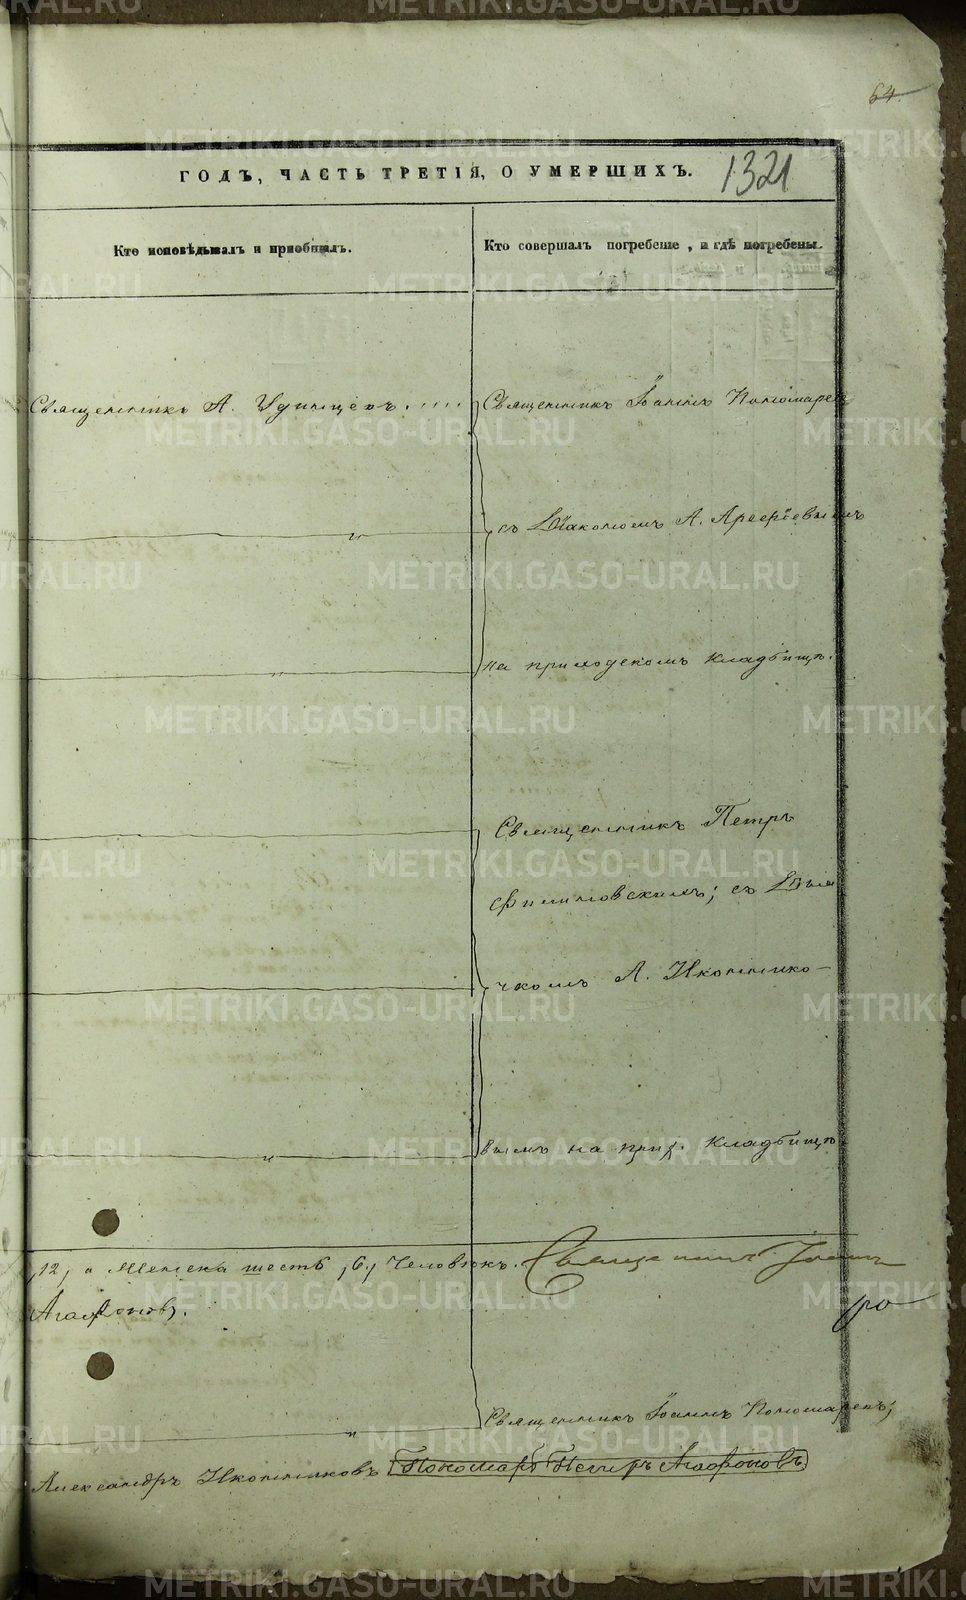 64.
ГОДЪ, ЧАСТЬ ТРЕТІЯ, О УМЕРШИХЪ.
1321
Кто исповѣдывалъ и пріобщалъ.
Кто совершалъ погребеніе, и гдѣ погребены.
Священникъ А. Удинцевъ.....
Священникъ Іоаннъ Пономарев
съ Діакономъ А. Арефіевымъ
на приходскомъ кладбищѣ.
Священникъ Петръ
съ
чкомъ А. Иконнико-
вымъ на прих. кладбищѣ
,12, а Женска шесть ,6, Человѣкъ. Священникъ Іоаннъ
По
Агафоновъ.
Священникъ Іоаннъ Пономаревъ;
Александръ Иконниковъ Пономарь Петръ Агафоновъ
METRIKI.GASO-URAL.RU